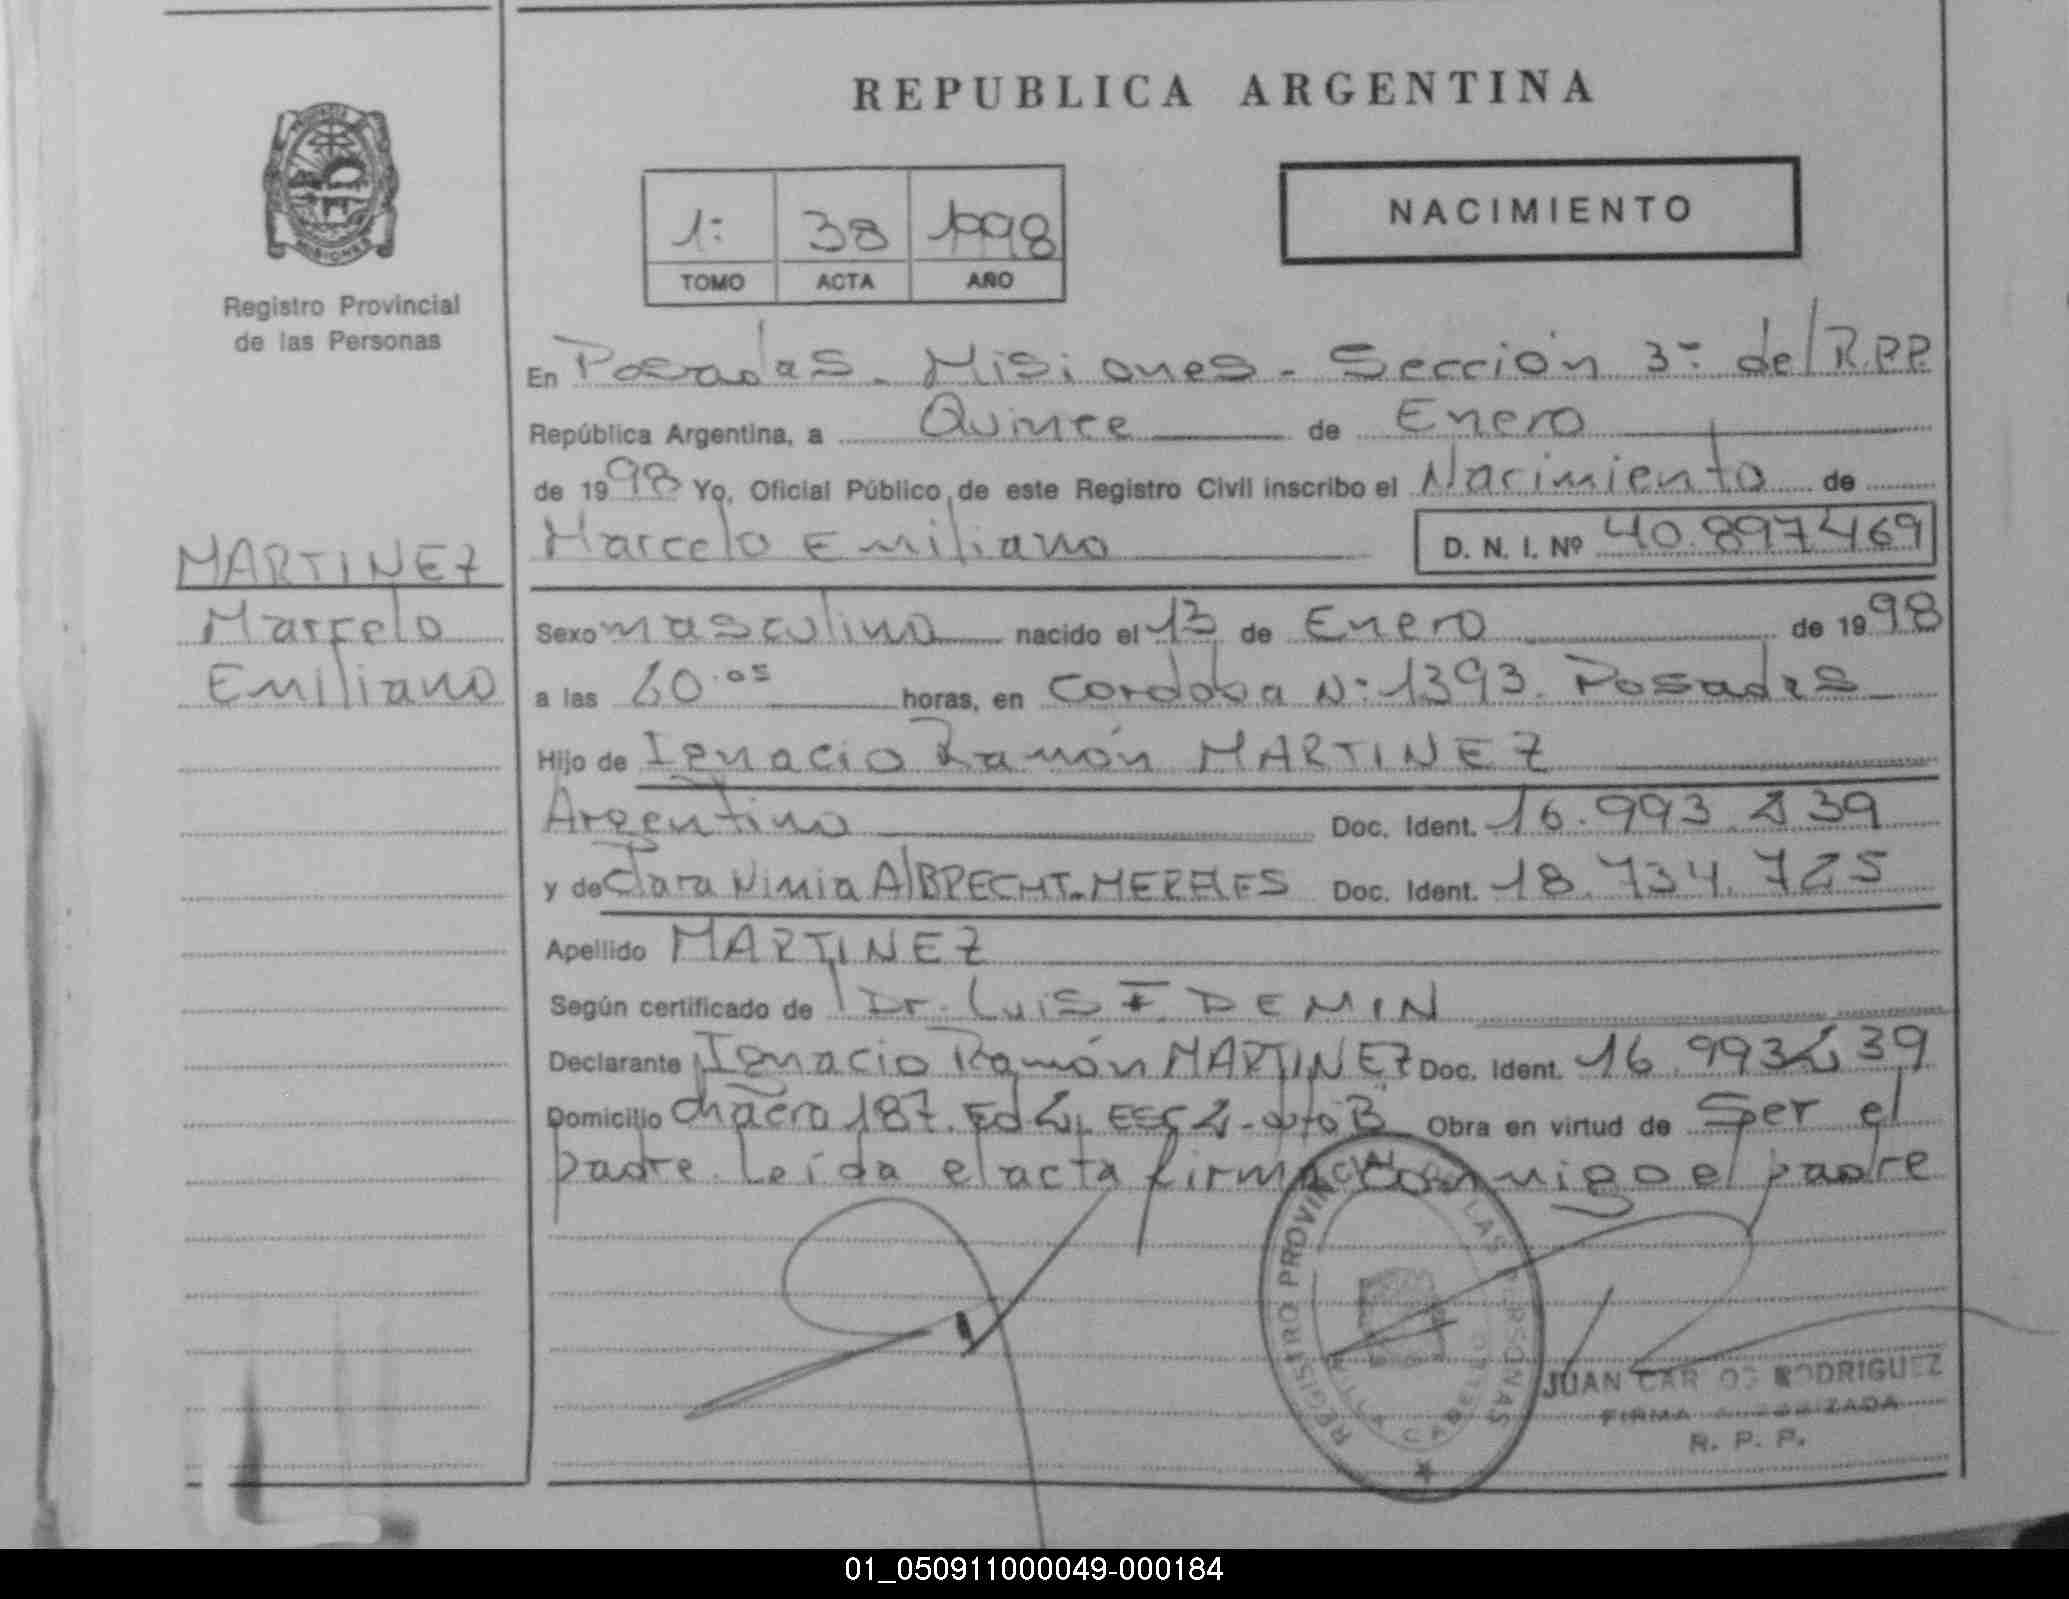 REPUBLICA ARGENTINA
NACIMIENTO
1: 38 1998
TOMO ACTA AÑO
Registro Provincial
de las Personas
MARTINEZ
Marcelo
Emiliano
En Posadas - Misiones - Sección 3- del R.P.P.
República Argentina, a Quince de Enero
de 1998 Yo, Oficial Público de este Registro Civil inscribo el Nacimiento de
Marcelo Emiliano D. N. I. Nº 40.897469
Sexo masculino nacido el 13 de Enero de 1998
a las 20.05 horas, en Cordoba N: 1393. Posadas
Hijo de Ignacio Ramón MARTINEZ
Argentino Doc. Ident. 16.993.239
y de Clara Nimia AlBRECHT-MERELES Doc. Ident. 18.734.725
Apellido MARTINEZ
Según certificado de Dr. Luis F. DEMIN
Declarante Ignacio Ramón MARTINEZ Doc. Ident. 16.993239
Domicilio 187. Ed 2, ESC 2 - dto B" Obra en virtud de Ser el
padre. Leída el acta firma conmigo el padre
REGISTRO PROVINCIAL LAS PERSONAS
JUAN CARLOS RODRIGUEZ
FIRMA AUTORIZADA
R. P. P.
01_050911000049-000184